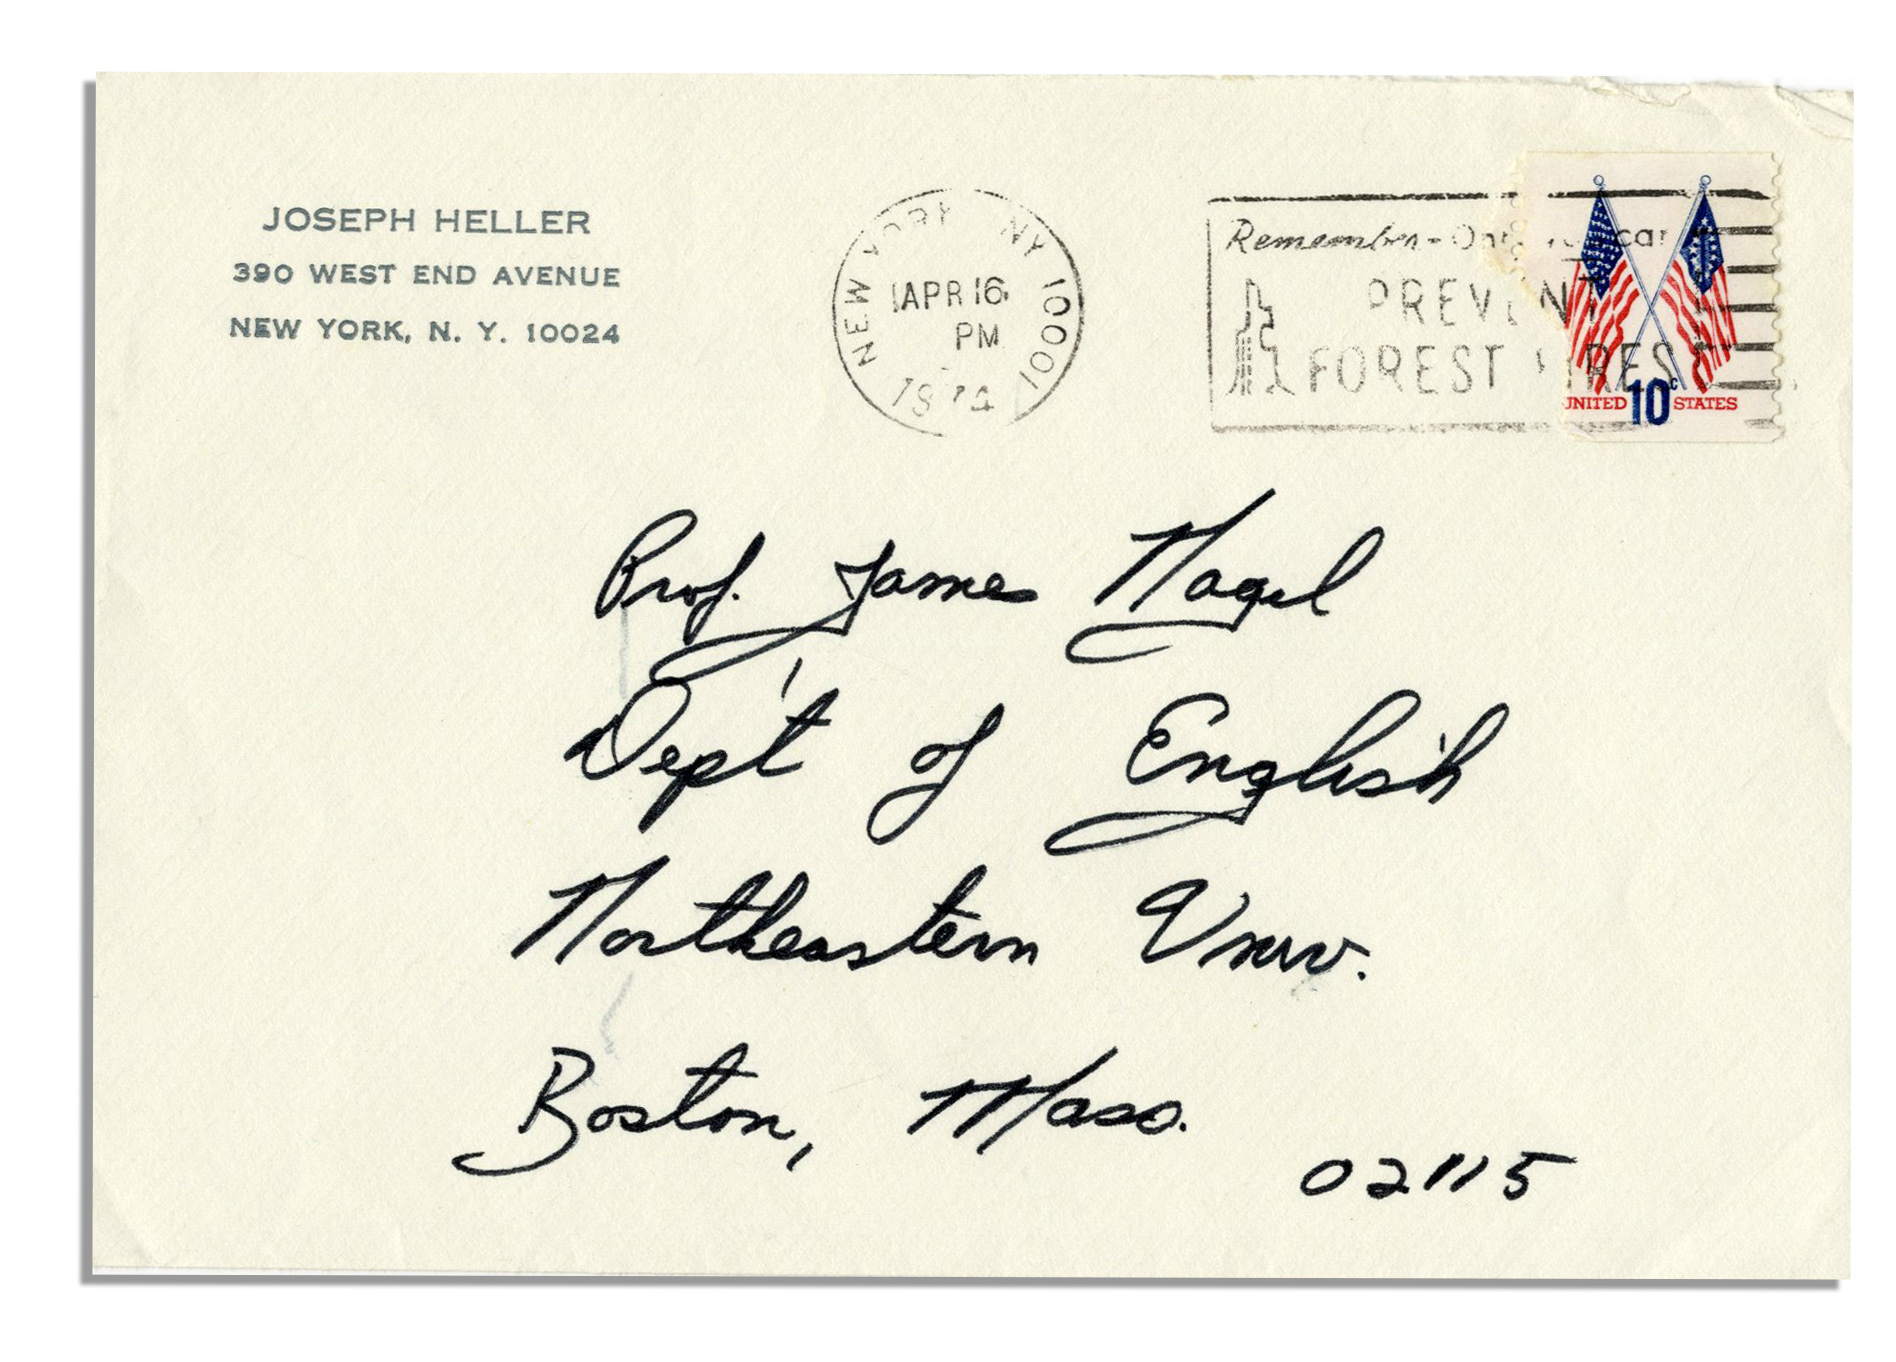 JOSEPH HELLER
390 WEST END AVENUE
NEW YORK, N. Y. 10024
NEW YORK NY 10001
APR 16
PM
1974
Remember - Only You can
PREVENT
FOREST FIRES
UNITED 10c STATES
Prof. James Nagel
Dep't of English
Northeastern Univ.
Boston, Mass.
02115